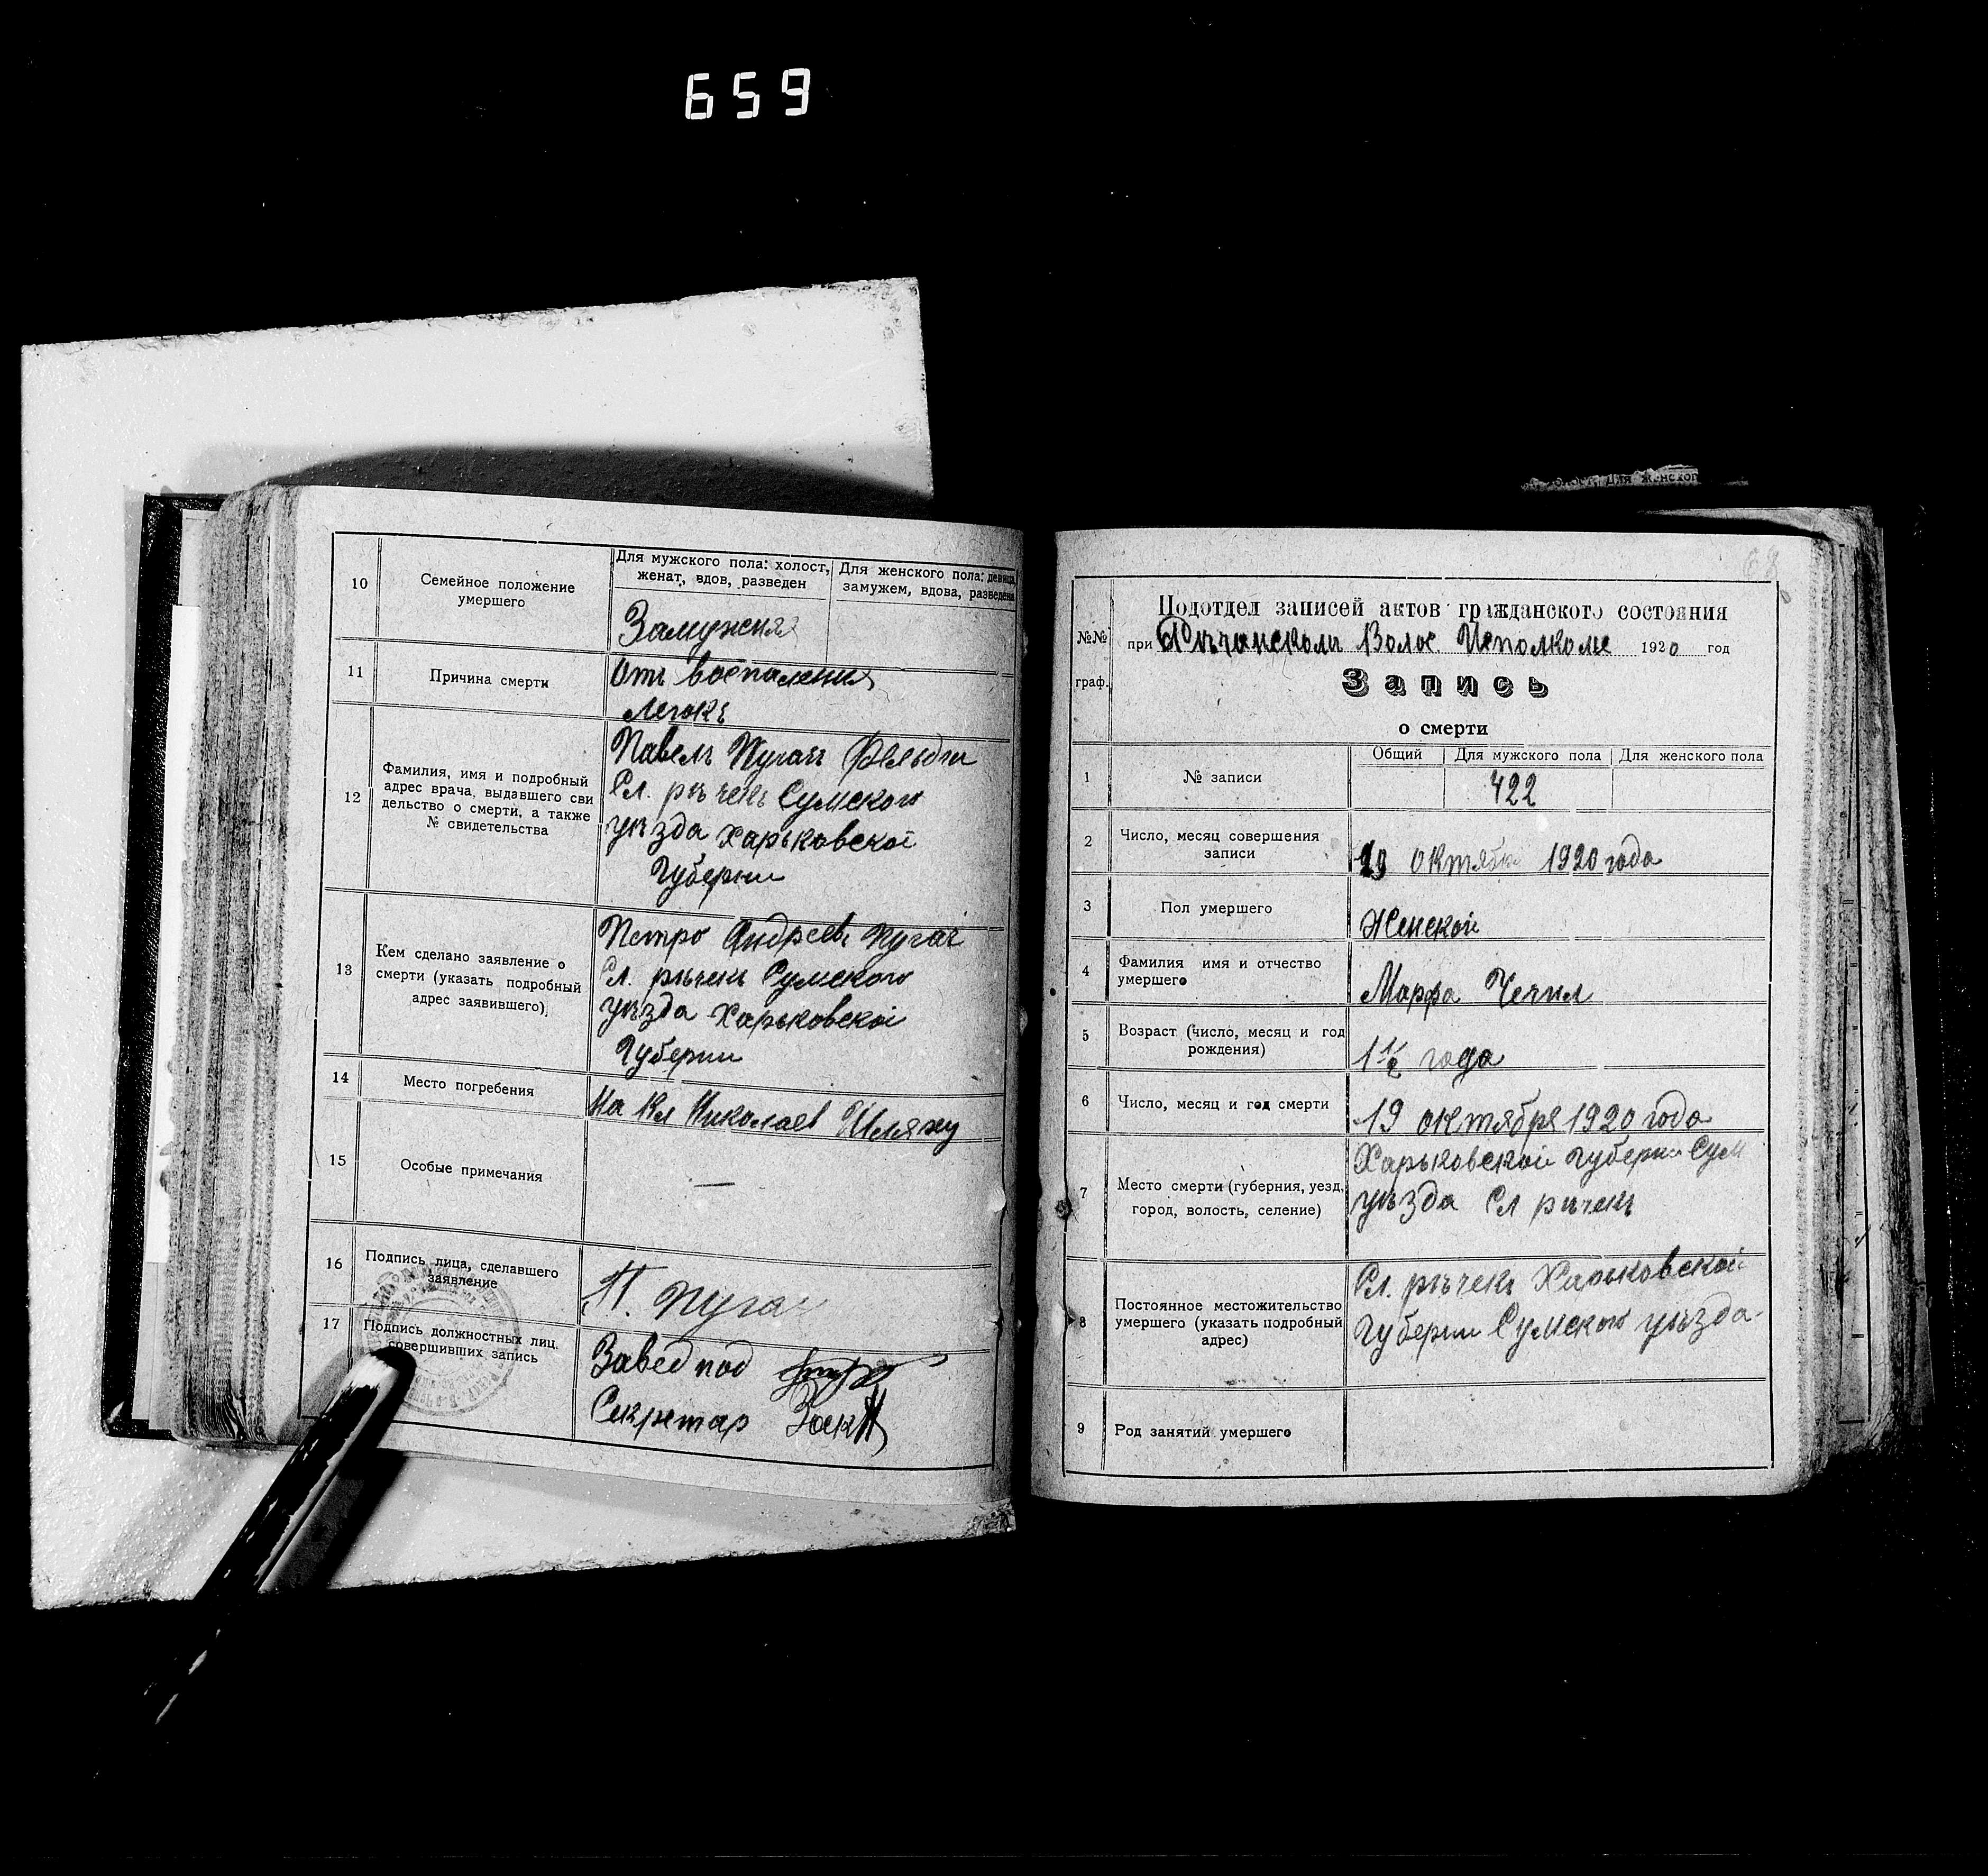 659
10
Семейное положение
умершего
Для мужского пола: холост,
женат, вдов, разведен
Для женского пола: девица,
замужем, вдова, разведена
Замужняя
11
Причина смерти
Отъ воспаления
Легокъ
12
Фамилия, имя и подробный
адрес врача, выдавшего сви
дельство о смерти, а также
№ свидетельства
Павелъ Пугачъ
Сл. речекъ Сумского
уѣзда Харьковской
Губерни
13
Кем сделано заявление о
смерти (указать подробный
адрес заявившего)
Петро Андреевъ Пугач
Сл. рѣчекъ Сумского
уѣзда Харьковской
Губерни
14
Место погребения
На Кл Николаев Шляху
15
Особые примечания
—
16
Подпись лица, сделавшего
заявление
П. Пугач
17
Подпись должностных лиц.
совершивших запись
Завед под
Секретар
68
№№
граф.
Подотдел записей актов гражданского состояния
при Рѣчанскомъ Волос Исполкоме 1920 год
Запись
о смерти
1
№ записи
Общий
Для мужского пола
Для женского пола
422
2
Число, месяц совершения
записи
19 октября 1920 года
3
Пол умершего
Женской
4
Фамилия имя и отчество
умершего
Марфа Чечил
5
Возраст (число, месяц и год
рождения)
1 1/2 года
6
Число, месяц и год смерти
19 октября 1920 года
7
Место смерти (губерния, уезд,
город, волость, селение)
Харьковской губерни Сум
уѣзда Сл рѣчекъ
8
Постоянное местожительство
умершего (указать подробный
адрес)
Сл. рѣчекъ Харьковской
Губерни Сумского уѣзда
9
Род занятий умершего